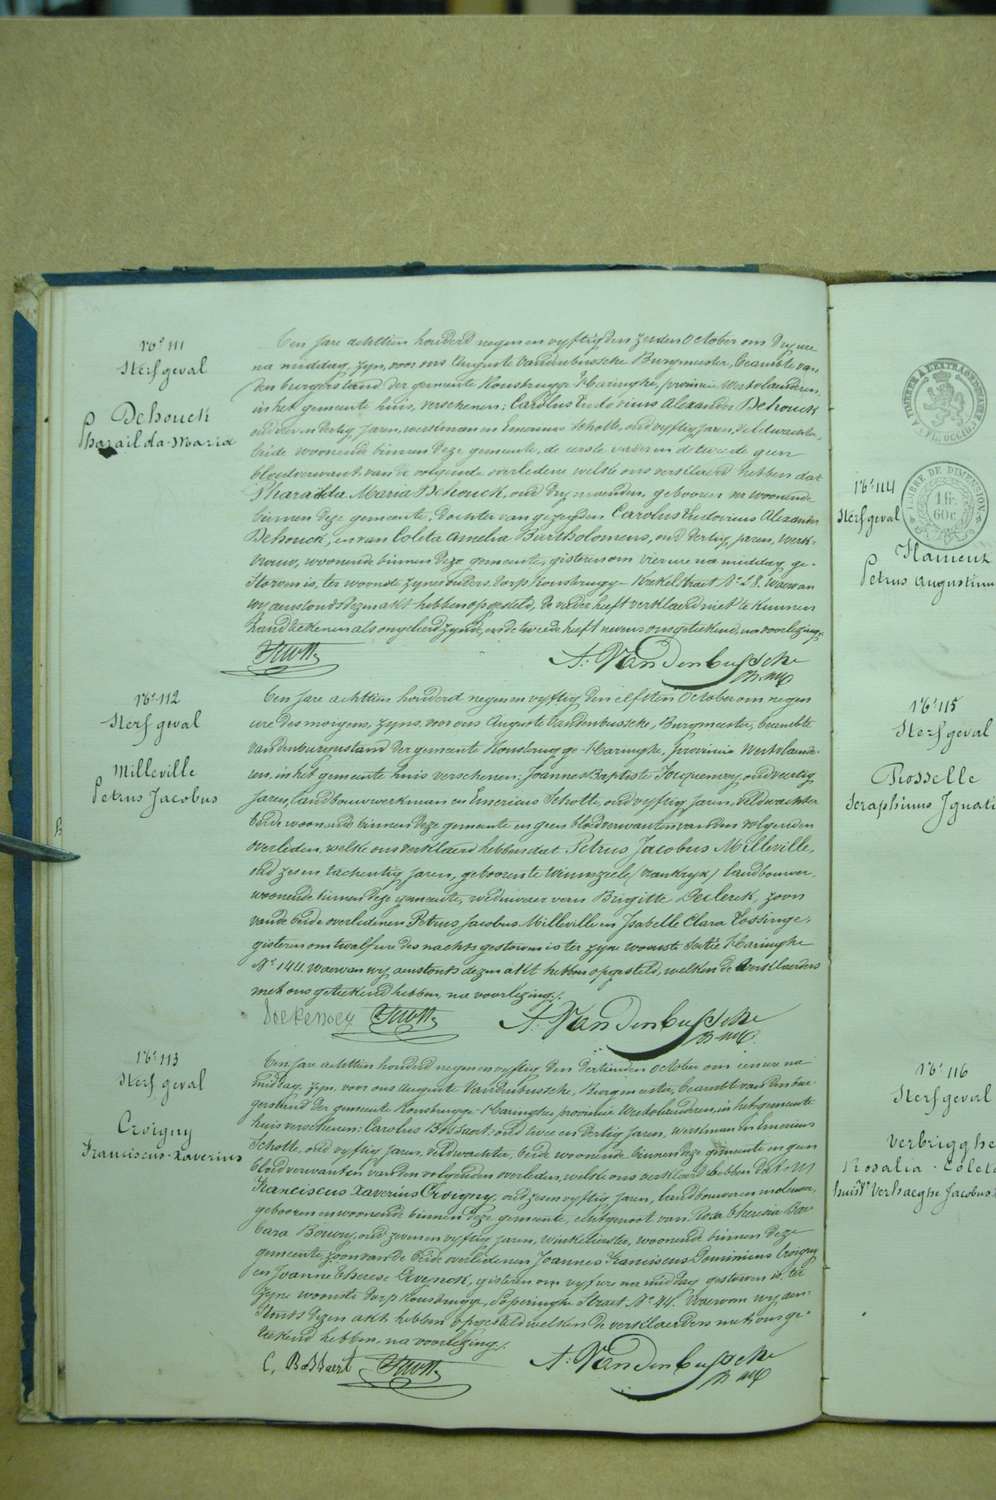 No 111
Sterfgeval
Dehouck
Pharaïlda-Maria
Ten jare achttien honderd negen en vyftig den zesden October om dry ure
na middag, zyn, voor ons Auguste Vandenbussche Burgmeester, beambte van
den burgerstand der gemeente Rousbrugge-Haringhe, provincie Westvlaanderen,
in het gemeente huis, verschenen; Carolus Ludovicus Alexander Dehouck
oud dertig jaren, werkman en Emericus Schotte, oud vyftig jaren, veldwachter,
beide woonende binnen deze gemeente, de eerste vader en de tweede geen
bloedverwant van de volgende overledene welke ons verklaard hebben dat
Pharaïlda Maria Dehouck, oud dry maenden, geboren en woonende
binnen deze gemeente, dochter van gezegden Carolus Ludovicus Alexander
Dehouck, en van Coleta Amelia Bartholomeus, oud dertig jaren, werk-
vrouw, woonende binnen deze gemeente, gisteren om vier ure na middag, ge-
storven is, ter woonste zyner ouders dorp Rousbrugge Statet No 58. Waervan
wy aenstonds dezen akt hebben opgesteld, de vader heeft verklaerd niet te kunnen
handteekenen als ongeleerd zynde, en de tweede heeft nevens ons geteekend, na voorlezing.
Schotte A: Vandenbussche
No 112
Sterfgeval
Milleville
Petrus Jacobus
Ten jare achttien honderd negen en vyftig den elfsten October om negen
ure des morgens, zyn, voor ons Auguste Vandenbussche, Burgmeester, beambte
van den burgerstand der gemeente Rousbrugge-Haringhe, provincie Westvlaande-
ren, in het gemeente huis verschenen; Joannes Baptiste oud veertig
jaren, landbouwwerkman en Emericus Schotte, oud vyftig jaren, veldwachter
beide woonende binnen deze gemeente en geen bloedverwanten van den volgenden
overleden, welke ons verklaerd hebben dat Petrus Jacobus Milleville,
oud zes en tachentig jaren, geboren te Winnezeele (Vrankryk) landbouwer,
woonende binnen deze gemeente, weduwaer van Brigitte Declerck, zoon
van de beide overledenen Petrus Jacobus Milleville en Isabelle Clara Tossinge,
gisteren om twalf ure des nachts gestorven is ter zyne woonste Sectie Haringhe
No 144. Waervan wy aenstonts dezen akt hebben opgesteld, welken de verklaerders
met ons geteekend hebben, na voorlezing.
Schotte A: Vandenbussche
No 113
Sterfgeval
Croigny
Franciscus-Xaverius
Ten jare achttien honderd negen en vyftig, den dertienden October om een ure na
middag, zyn, voor ons Auguste Vandenbussche, Burgmeester, beambte van den bur-
gerstand der gemeente Rousbrugge-Haringhe, provincie Westvlaanderen, in het gemeente
huis verschenen: Carolus Bossaert, oud twee en dertig jaren, werkman en Emericus
Schotte, oud vyftig jaren, veldwachter, beide woonende binnen deze gemeente en geen
bloedverwanten van den volgenden overleden, welke ons verklaerd hebben dat
Franciscus Xaverius Croigny, oud zes en vyftig jaren, landbouwer en molenaer,
geboren en woonende binnen deze gemeente, echtgenoot van Rosa Theresia Bar-
bara Bouery, oud zeven en vyftig jaren, winkelierster, woonende binnen deze
gemeente zoon van de beide overledenen Joannes Franciscus Dominicus Croigny
en Joanne Therese gisteren om vyf ure na middag gestorven is, ter
zyne woonste dorp Rousbrugge, Poperinghe Straet No 44. Waervan wy aen-
stonts dezen akt hebben opgesteld welken de verklaerders met ons ge-
teekend hebben, na voorlezing.
C. Bossaert Schotte A: Vandenbussche
TIMBRE DE DIMENSION
1 fr
60 c
No 114
Sterfgeval
Hameux
Petrus Augustinu
No 115
Sterfgeval
Rosselle
Seraphinus Ignati
No 116
Sterfgeval
Verbrigghe
Rosalia-Colet
huisv Verhaeghe Jacobus